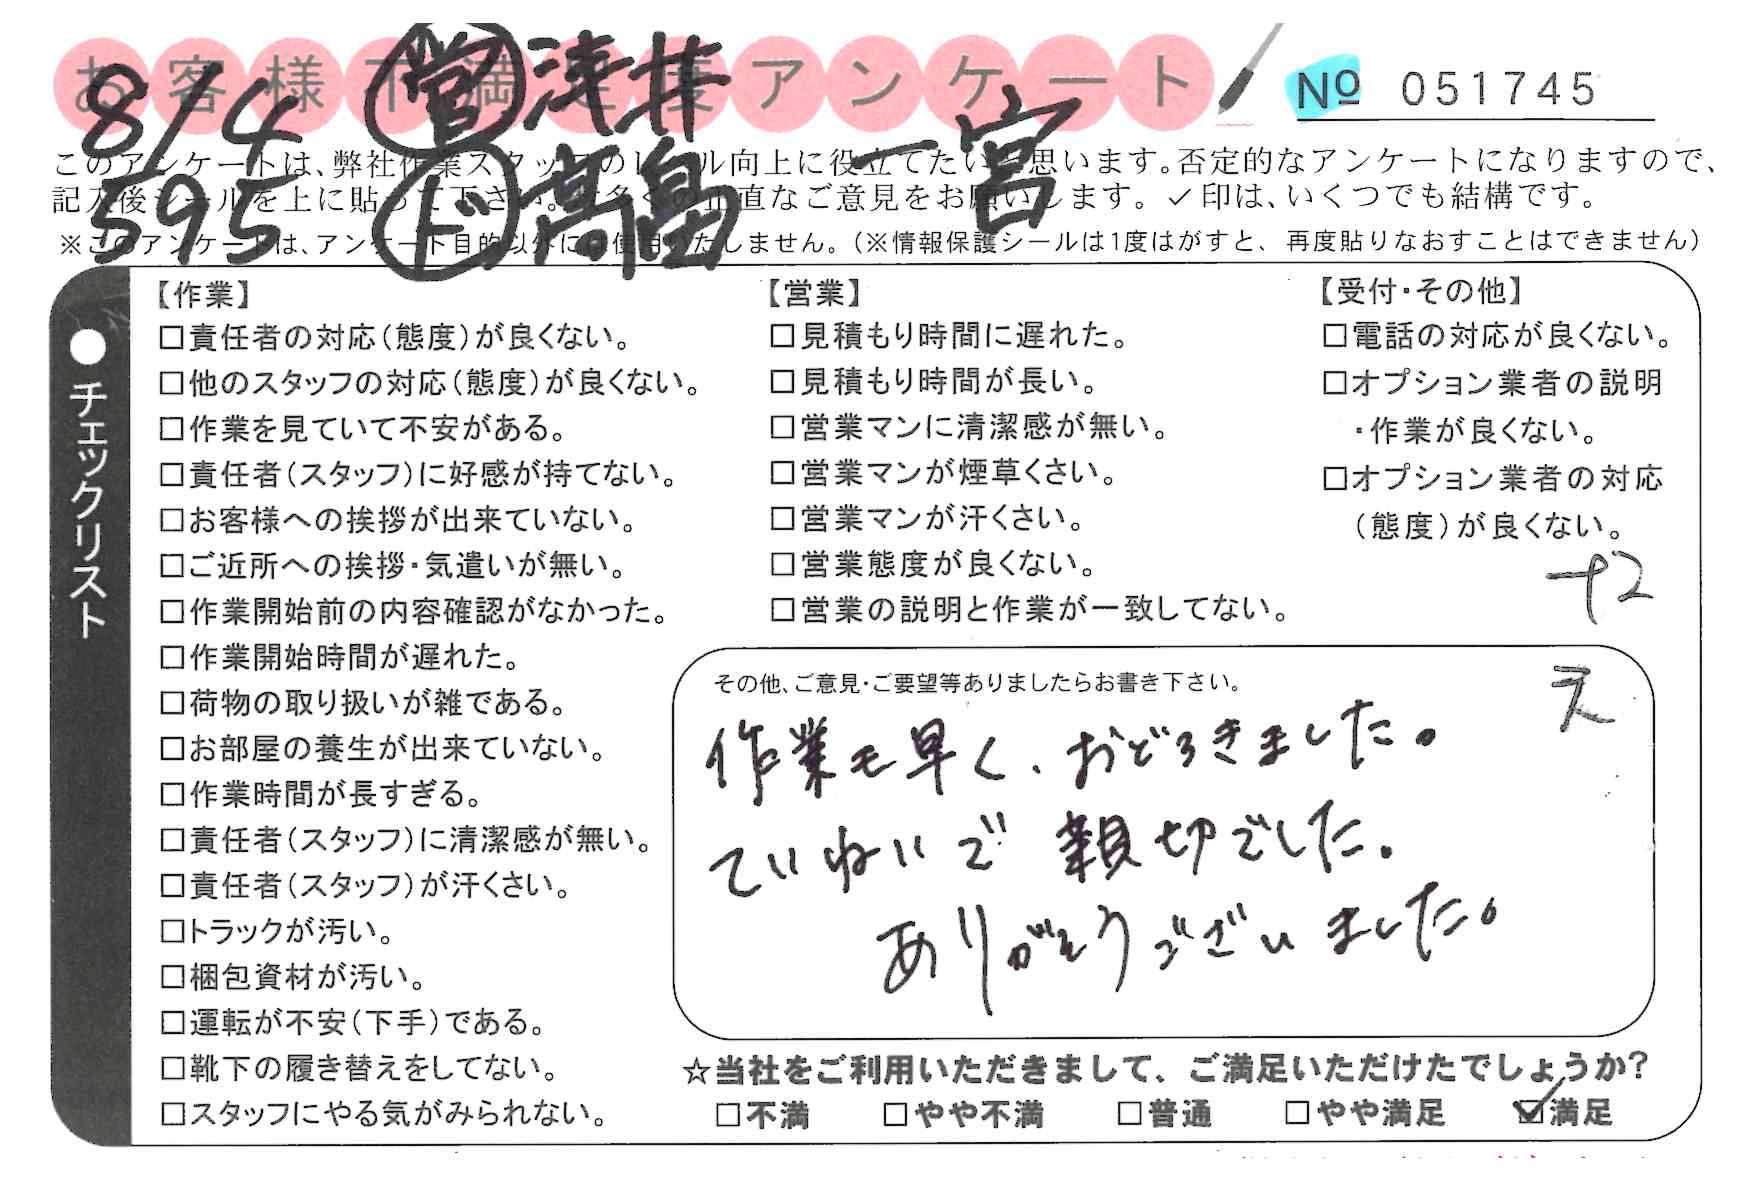 お客様不満足度アンケート
№ 051745
8/4 営 津井
595 ド 高畠 一宮
このアンケートは、弊社作業スタッフのレベル向上に役立てたいと思います。否定的なアンケートになりますので、
記入後シールを上に貼って下さい。数多くの正直なご意見をお願いします。✓印は、いくつでも結構です。
※このアンケートは、アンケート目的以外には使用いたしません。（※情報保護シールは1度はがすと、再度貼りなおすことはできません）
●チェックリスト
【作業】
□責任者の対応（態度）が良くない。
□他のスタッフの対応（態度）が良くない。
□作業を見ていて不安がある。
□責任者（スタッフ）に好感が持てない。
□お客様への挨拶が出来ていない。
□ご近所への挨拶・気遣いが無い。
□作業開始前の内容確認がなかった。
□作業開始時間が遅れた。
□荷物の取り扱いが雑である。
□お部屋の養生が出来ていない。
□作業時間が長すぎる。
□責任者（スタッフ）に清潔感が無い。
□責任者（スタッフ）が汗くさい。
□トラックが汚い。
□梱包資材が汚い。
□運転が不安（下手）である。
□靴下の履き替えをしてない。
□スタッフにやる気がみられない。
【営業】
□見積もり時間に遅れた。
□見積もり時間が長い。
□営業マンに清潔感が無い。
□営業マンが煙草くさい。
□営業マンが汗くさい。
□営業態度が良くない。
□営業の説明と作業が一致してない。
【受付・その他】
□電話の対応が良くない。
□オプション業者の説明
・作業が良くない。
□オプション業者の対応
（態度）が良くない。
+2
その他、ご意見・ご要望等ありましたらお書き下さい。
作業も早く、おどろきました。
ていねいで親切でした。
ありがとうございました。
☆当社をご利用いただきまして、ご満足いただけたでしょうか?
□不満 □やや不満 □普通 □やや満足 ☑満足